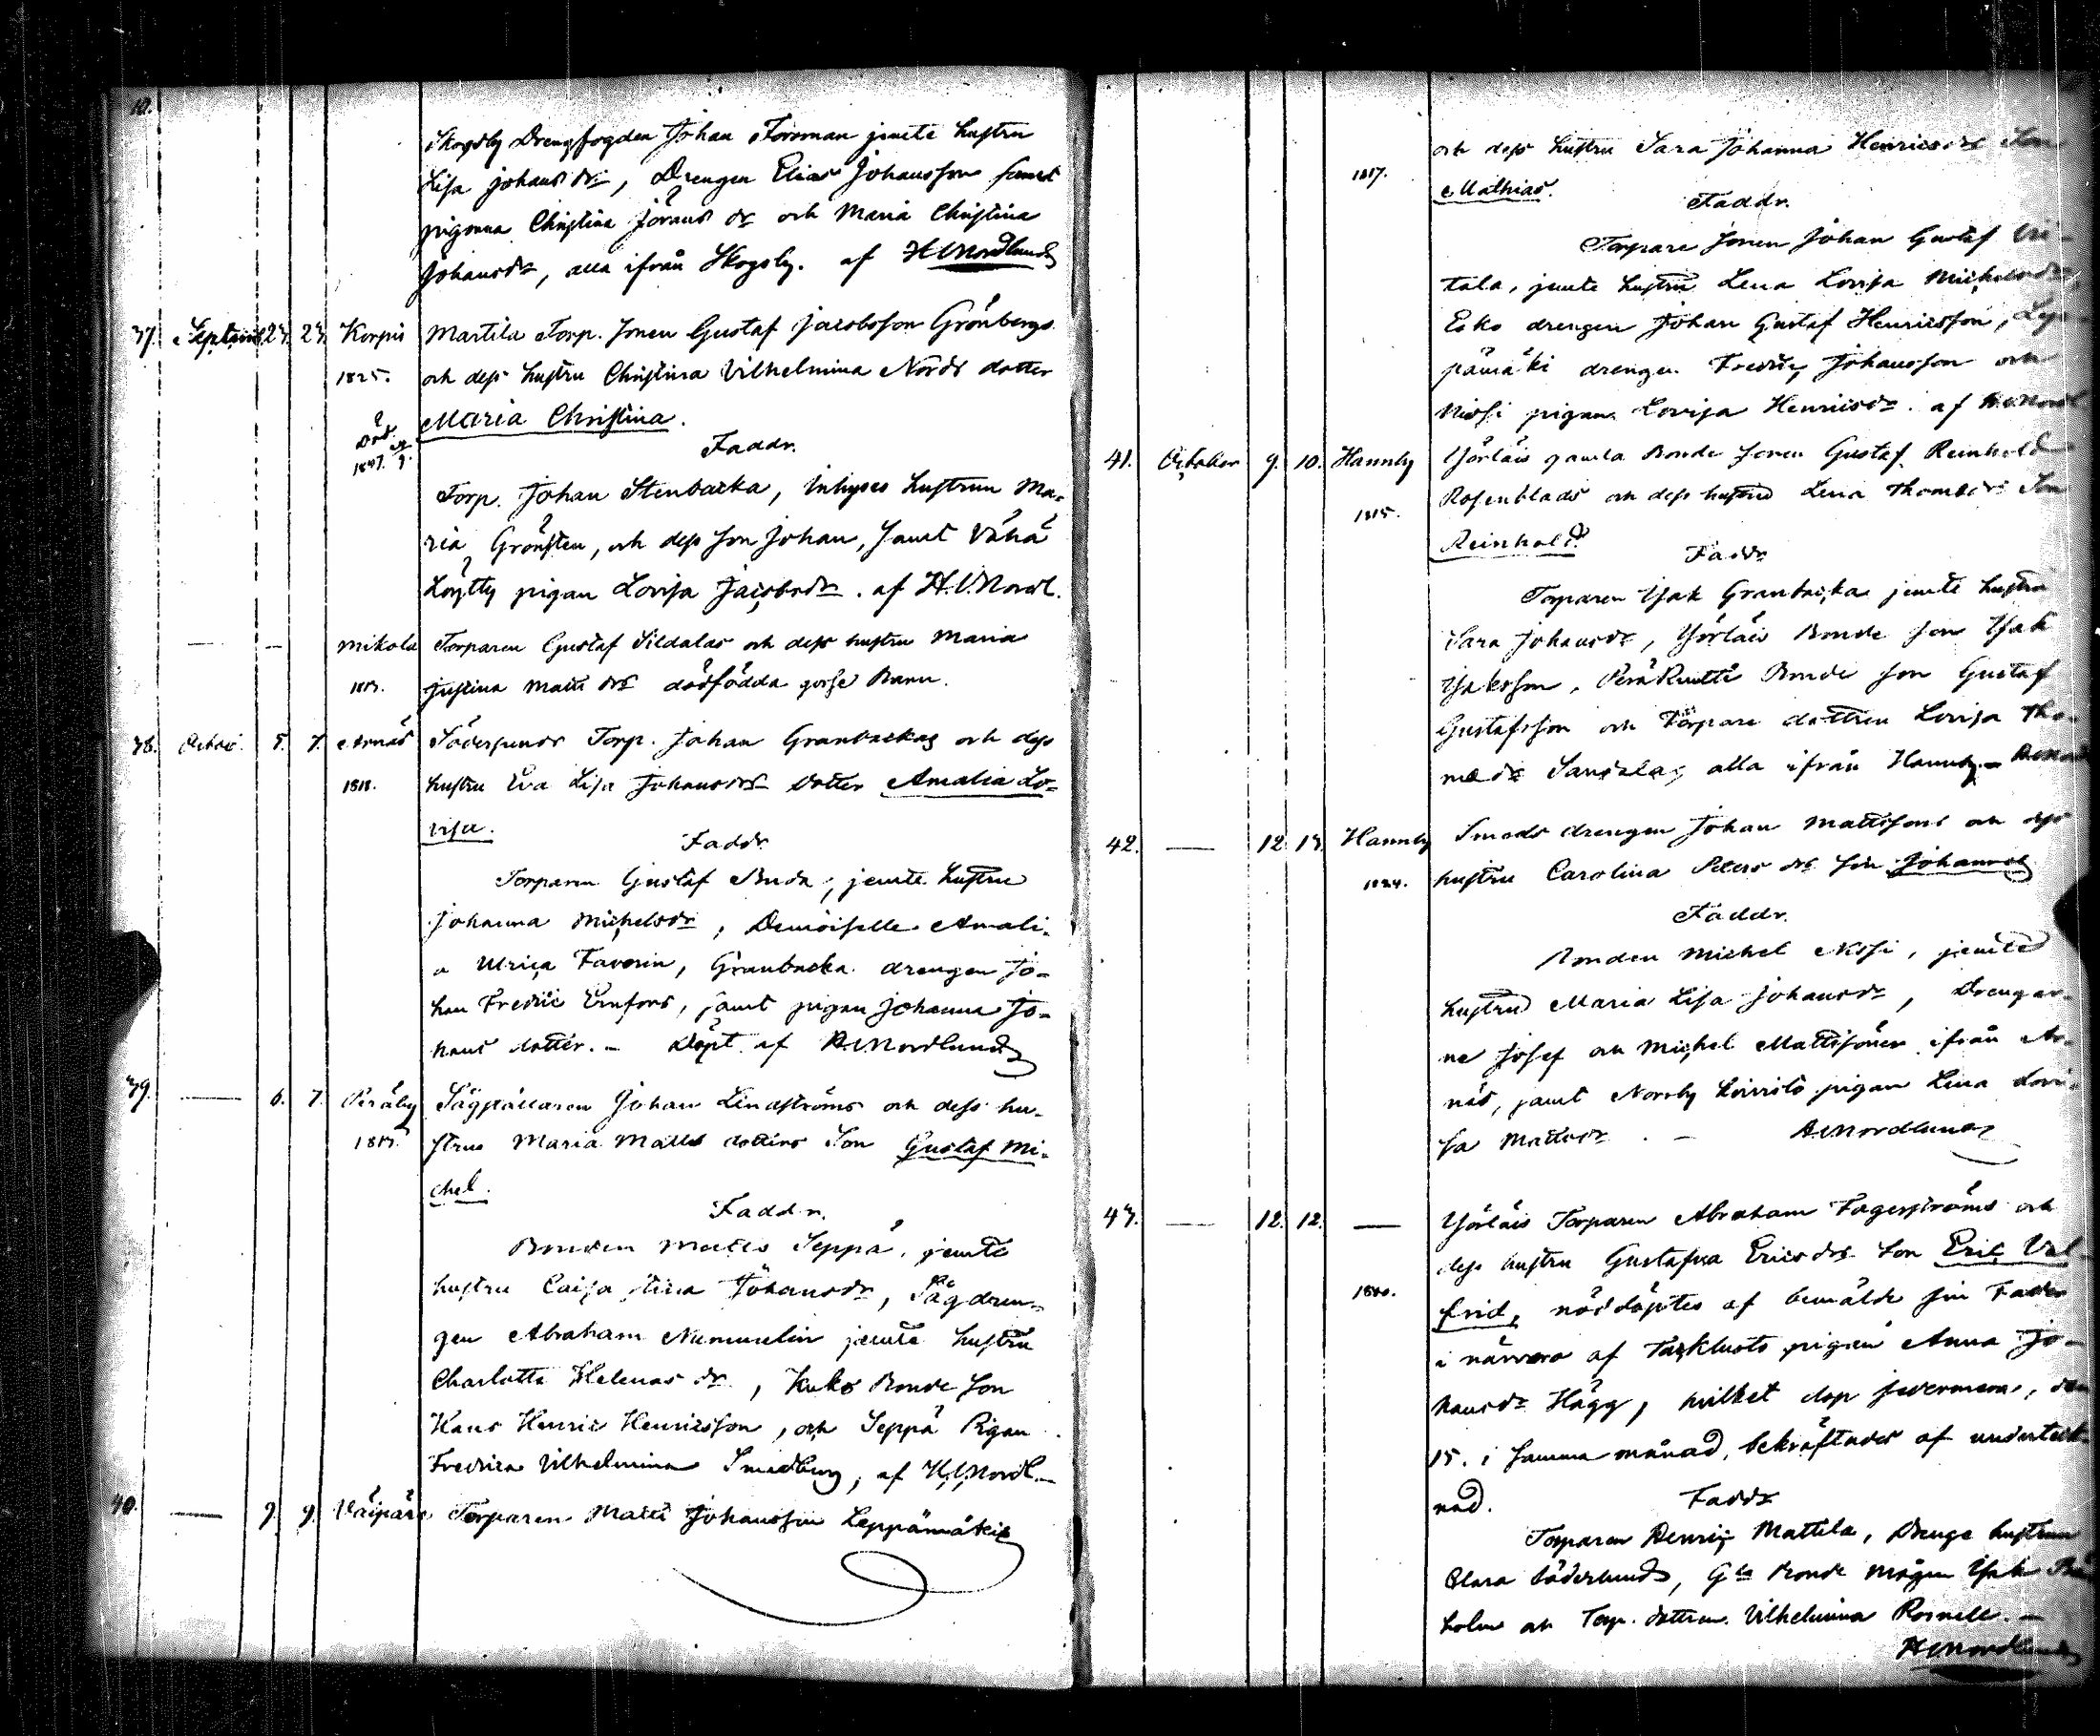 10.
Skogsby Drengfogden Johan Forsman jemte hustru
Lisa Johans dr, Drengen Elias Johansson samt
pigorna Christina Jörans dr och Maria Christina
Johansdr, alla ifrån Skogsby. af H.V.Nordlund
37. Septemb. 23. 23. Korpis Martila Torp. Sonen Gustaf Jacobsson Grönbergs
1825. och dess hustru Christina Vilhelmina Nords dotter
Maria Christina.
Död 1847.
Faddr.
Torp. Johan Stenbacka, Inhyses hustrun Ma-
ria Grönsten, och dess son Johan, samt Vähä
Löytty pigan Lovisa Jacobsdr. af H.V.Nordl.
— — Mikola Torparen Gustaf Sildalas och dess hustru Maria
Justina Matts drs dödfödda gosse Barn.
38. Octob. 5. 7. Arnäs Södersunds Torp. Johan Granbackas och dess
1818. hustru Eva Lisa Johansdrs dotter Amalia Lo-
visa.
Faddr
Torparen Gustaf Buda, jemte hustru
Johanna Michelsdr, Demoiselle Amali-
a Ulrica Favorin, Granbacka drengen Jo-
han Fredric Ernfors, samt pigan Johanna Jo-
hans dotter. – döpt af H.V.Nordlund
39. — 6. 7. Peräby Sågställaren Johan Lindströms och dess hu-
strus Maria Matts dotters Son Gustaf Mi-
chel.
Faddr.
Bonden Matts Seppä, jemte
hustru Caisa Stina Johansdr, Sågdren-
gen Abraham Nummelin jemte hustru
Charlotta Helenas dr, Kuko Bonde son
Hans Henric Henricsson, och Seppä Pigan
Fredrica Vilhelmina Smedberg, af H.V.Nordl.
40. — 9. 9. Väipäis Torparen Matts Johansson Leppämäkis
och dess hustru Sara Johanna Henricsdrs Son
1817. Mathias.
Faddr.
Torpare Sonen Johan Gustaf Vii-
tala, jemte hustru Lena Lovisa Michelsdr,
Esko drengen Johan Gustaf Henricsson, Lep-
pämäki drengen Fredric Johansson och
Nissi pigan Lovisa Henricsdr. af H.V.Nordl
41. October 9. 10. Hannby Yörläis gamla Bonde Sonen Gustaf Reinhold
1815. Rosenblads och dess hustru Lena Thomasdrs Son
Reinhold.
Faddr
Torparen Isak Granbacka jemte hustru
Sara Johansdr, Yörläis Bonde son Isak
Isaksson, PeräKnutti Bonde son Gustaf
Gustafsson och Torpare dottren Lovisa Tho-
masdr Sandala, alla ifrån Hannby.
42. — 12. 13. Hannby Smeds drengen Johan Mattssons och dess
1824. hustru Carolina Peters drs son Johannes
Faddr.
Bonden Michel Nissi, jemte
hustru Maria Lisa Johansdr, Drengar-
ne Josef och Michel Mattssöner ifrån Ar-
näs, samt Norrby pigan Lena Lovi-
sa Mattsdr. – H.V.Nordlund
43. — 12. 12. — Yörläis Torparen Abraham Fagerströms och
dess hustru Gustafva Ericsdrs Son Eric Val-
frid, nöddöptes af bemälde sin Fader
i närvaro af pigan Anna Jo-
hansdr Hägg, hvilket dop sedermera, den
15. i samma månad, bekräftades af underteck-
nad.
Faddr
Torparen Henric Mattila, Drenge hustrun
Clara Söderlund, Gla Bonde mågen Isak
holm och Torp. dottren Vilhelmina Rosnell. –
H.V.Nordlund